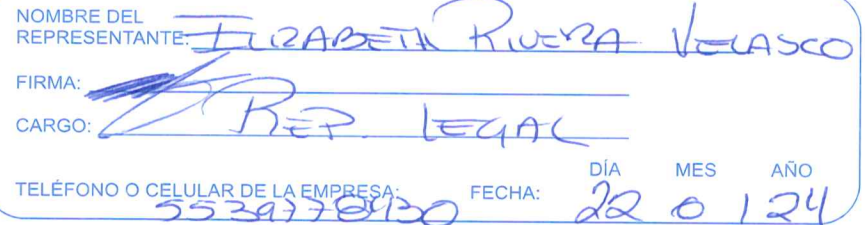 NOMBRE DEL
REPRESENTANTE: ELIZABETH RIVERA VELASCO
FIRMA:
CARGO: REP. LEGAL
DÍA MES AÑO
TELÉFONO O CELULAR DE LA EMPRESA: 5539778930 FECHA: 22 01 24